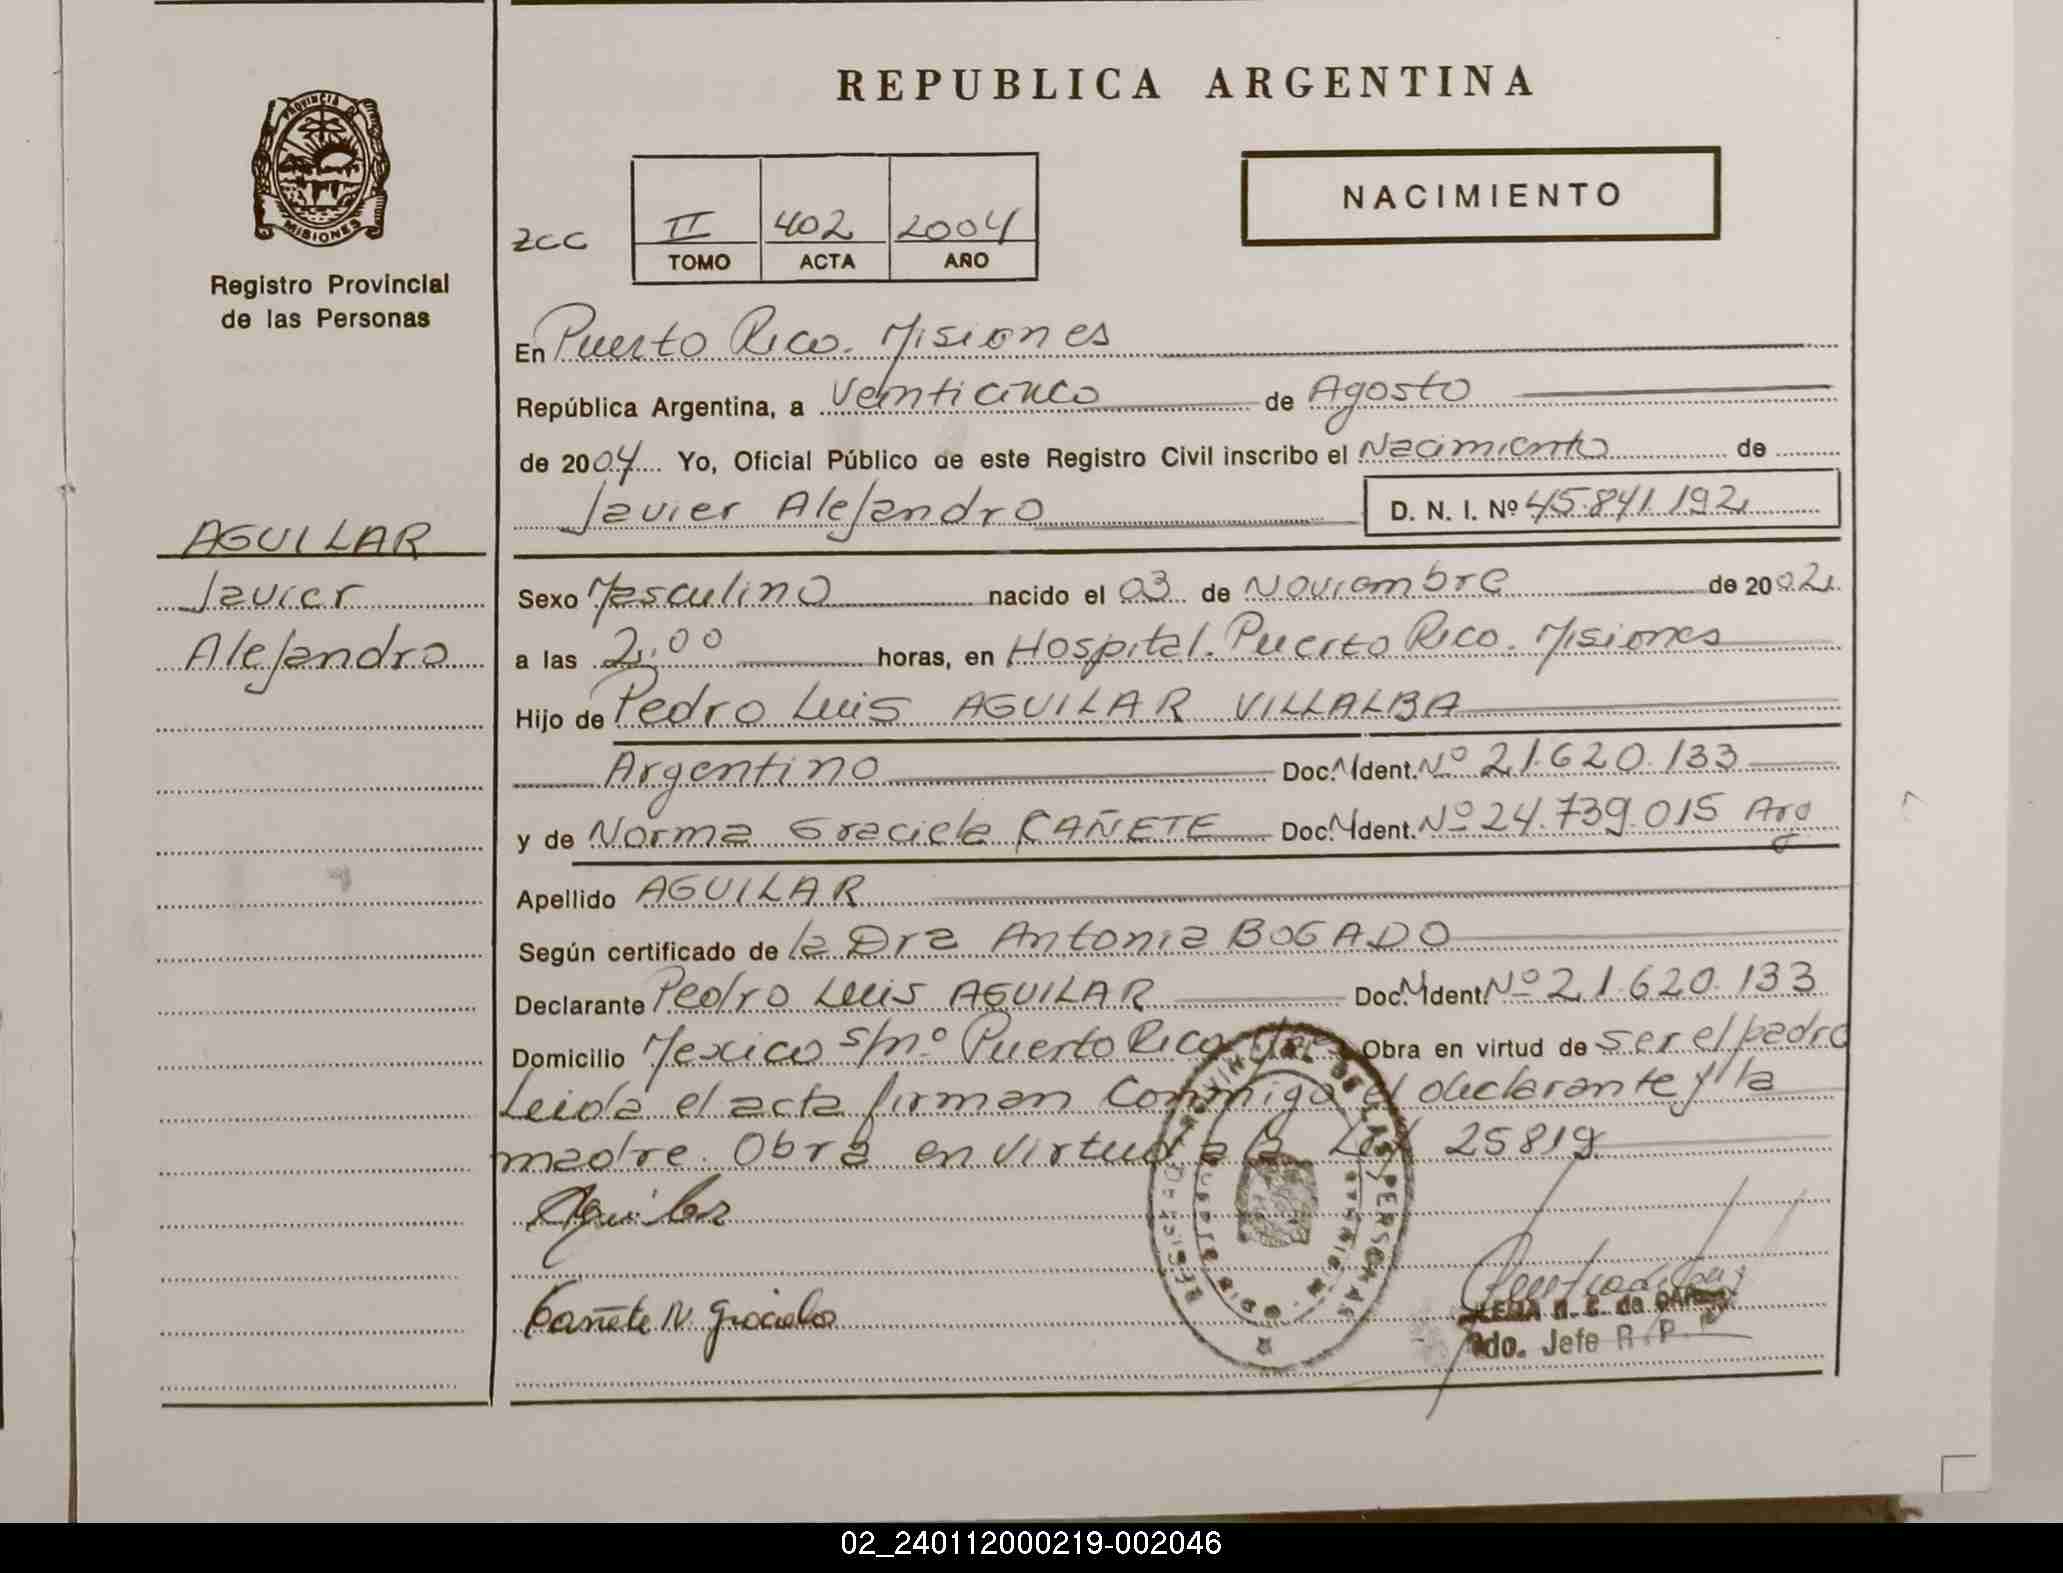 REPUBLICA ARGENTINA
PROVINCIA DE
MISIONES
Registro Provincial
de las Personas
NACIMIENTO
zcc II 402 2004
TOMO ACTA AÑO
En Puerto Rico. Misiones
República Argentina, a Veinticinco de Agosto
de 2004 Yo, Oficial Público de este Registro Civil inscribo el Nacimiento de
Javier Alejandro D. N. I. Nº 45.841.192
AGUILAR
Javier
Alejandro
Sexo Masculino nacido el 03 de Noviembre de 2002
a las 2,00 horas, en Hospital. Puerto Rico. Misiones
Hijo de Pedro Luis AGUILAR VILLALBA
Argentino Doc. N Ident. Nº 21.620.133
y de Norma Graciela CAÑETE Doc. N Ident. Nº 24.739.015 Arg
Apellido AGUILAR
Según certificado de la Dra Antonia BOGADO
Declarante Pedro Luis AGUILAR Doc. N Ident. Nº 21.620.133
Domicilio Mexico s/nº Puerto Rico Obra en virtud de ser el padre
Leida el acta firman Conmigo el declarante y la
madre. Obra en virtud a la Ley 25819
Aguilar
Cañete N. Graciela
DE LAS PERSONAS
PUERTO RICO
Jefe R. P.
02_240112000219-002046